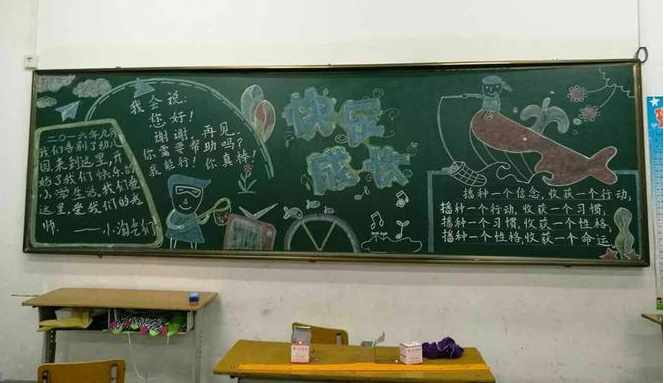 二〇一六年九月
我们告别了幼儿
园,来到这里,开
始了我们快乐的
小学生活,我们爱
这里,爱我们的老
师。——小淘气们
我会说:
您好!
谢谢、再见、
你需要帮助吗?
我能行!你真棒!
快乐
成长
播种一个信念,收获一个行动,
播种一个行动,收获一个习惯,
播种一个习惯,收获一个性格,
播种一个性格,收获一个命运。